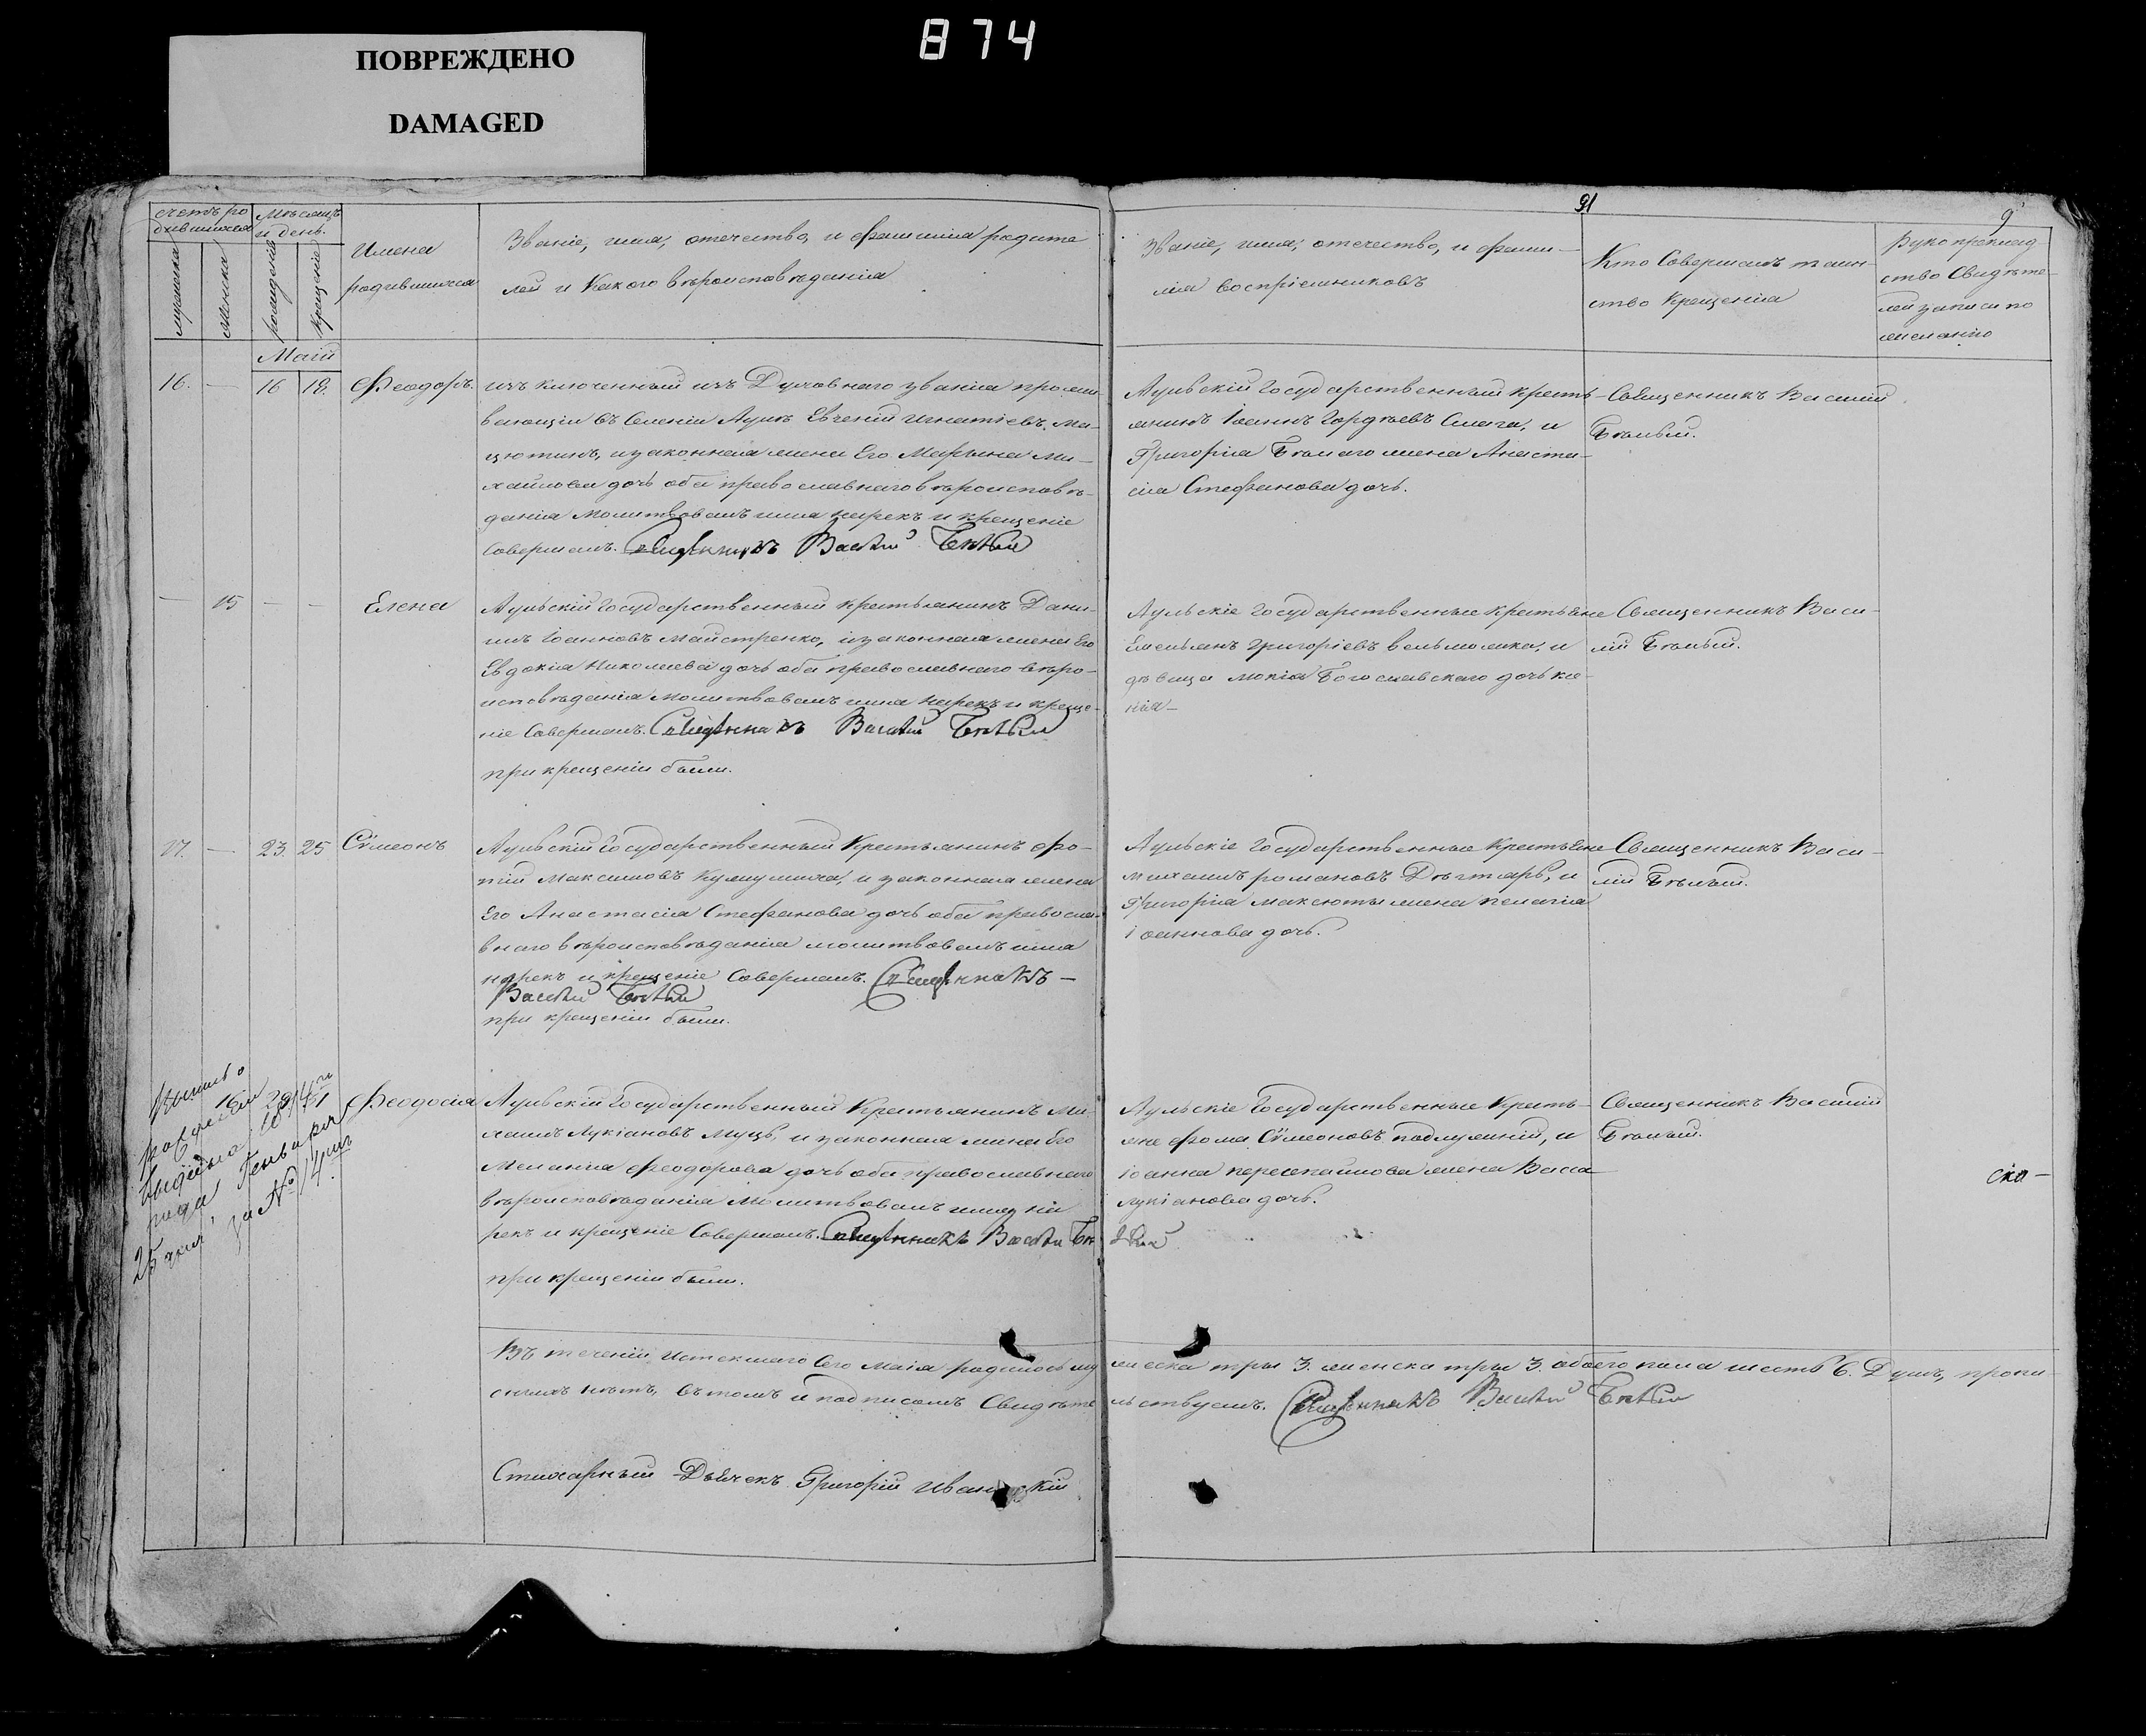 874
ПОВРЕЖДЕНО
DAMAGED
91
9
счетъ ро
дившихся
Мѣсяцъ
и день.
мужеска
женска
рожденія
крещенія
Имена
родившихся
Званіе, имя, отечество, и фамилія родите
лей и Какого вѣроисповѣданія
Званіе, имя, отечество, и фами-
лія воспріемниковъ
Кто Совершалъ таин-
ство Крещенія
Рукоприклад
ство Свидѣте-
лей записи по
желанію
Маій
16. — 16 18. Феодоръ.
изъключенный изъ Духовнаго званія прожи
вающій въ Селеніи Аулѣ Евгеній Игнатіевъ
и законная жена Его Марѳина Ми-
хайлова дочь оба православнаго вѣроисповѣ-
данія Молитвовалъ имя нарекъ и крещеніе
Совершалъ. Священникъ Василій Бѣлый
Аульскій Государственный кресть-
янинъ Іоаннъ Гордѣевъ и
Григорія Бѣлаго жена Анаста-
сія Стефанова дочь.
Священникъ Василій
Бѣлый.
— 15 — — Елена
Аульскій Государственный крестьянинъ Дани-
илъ Іоанновъ Майстренко, и законная жена Его
Евдокія Николаева дочь оба православнаго вѣро-
исповѣданія Молитвовалъ имя нарекъ и креще-
ніе Совершалъ. Священникъ Василій Бѣлый
при крещеніи были.
Аульскіе Государственные крестьяне
Емельянъ Григоріевъ и
дѣвица Мокія Богославскаго дочь
Священникъ Васи-
лій Бѣлый.
17. — 23. 25 Сѵмеонъ
Аульскій Государственный Крестьянинъ Фо-
тій Максимовъ и законная жена
Его Анастасія Стефанова дочь оба правосла-
внаго вѣроисповѣданія молитвовалъ имя
нарекъ и крещеніе Совершалъ. Священникъ —
Василій Бѣлый
при крещеніи были.
Аульскіе Государственные Крестьяне
Михаилъ Романовъ Дѣгтярь, и
Григорія Максюты жена Пелагія
Іоаннова дочь.
Священникъ Васи-
лій Бѣлый.
— 16 29 31 Феодосія
Аульскій Государственный Крестьянинъ Ми-
хаилъ Лукіановъ Муць, и законная жена Его
Меланія Феодорова дочь оба православнаго
вѣроисповѣданія Молитвовалъ имя на
рекъ и крещеніе Совершалъ. Священникъ Василій Бѣ
лый
при крещеніи были.
Аульскіе Государственные Кресть-
яне Фома Сѵмеоновъ и
Іоанна жена Васса
Лукіанова дочь.
Священникъ Василій
Бѣлый.
рожденіи
года Генваря
25 дня за № 14.
ска—
Въ теченіи истекшаго Сего Маія родилось му жеска три 3. женска три 3. обоего пола шесть 6. Душъ, пропу-
сныхъ нѣтъ, въ томъ и подписомъ Свидѣте льствуемъ. Священникъ Василій Бѣлый
Стихарный Дьячекъ Григорій